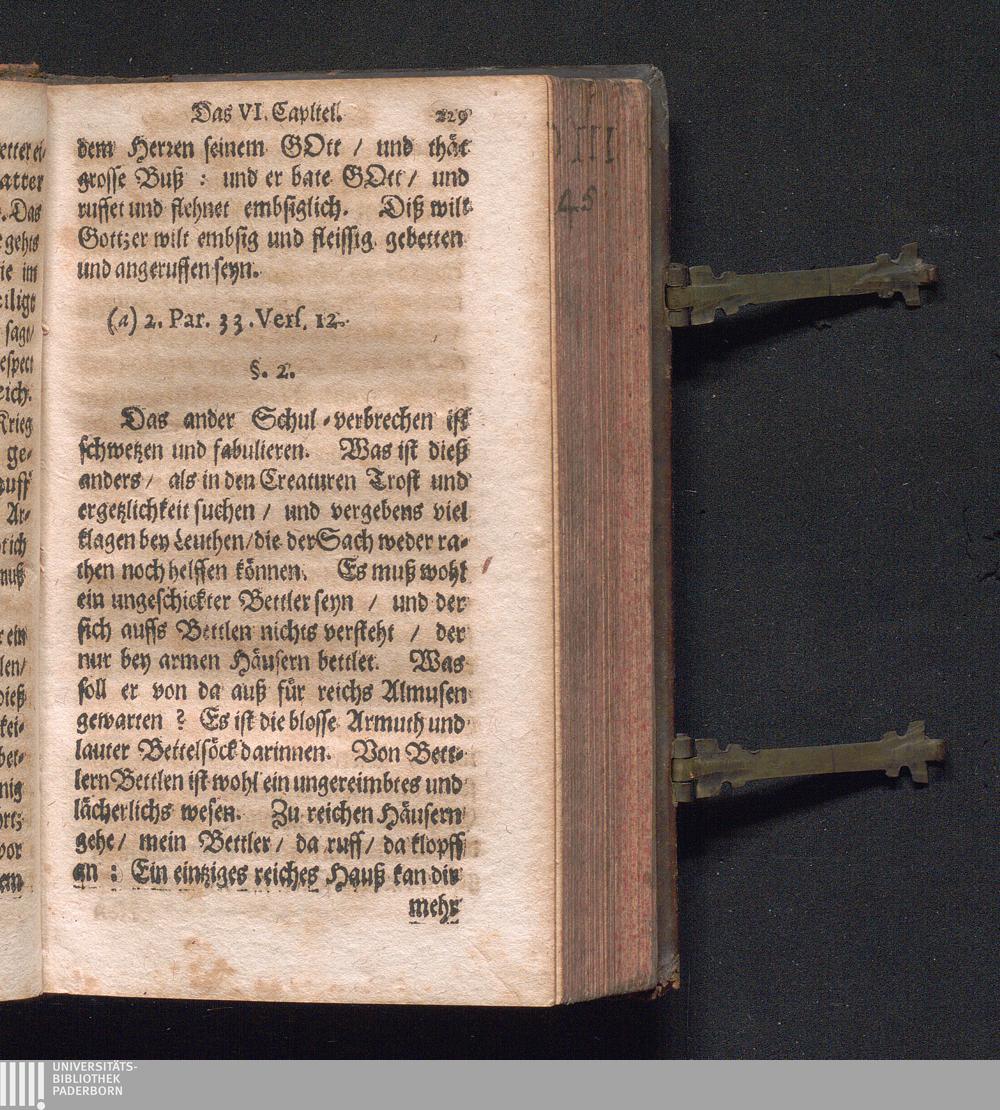 Das VI. Capitel. 229
dem Herren seinem GOtt / und thät
grosse Buß : und er bate GOtt / und
ruffet und flehnet embsiglich. Diß wilt
Gott; er wilt embsig und fleissig gebetten
und angeruffen seyn.
(a) 2. Par. 33. Vers. 12.
§. 2.
Das ander Schul-verbrechen ist
schwetzen und fabulieren. Was ist dieß
anders / als in den Creaturen Trost und
ergetzlichkeit suchen / und vergebens viel
klagen bey Leuthen / die der Sach weder ra-
then noch helffen können. Es muß wohl
ein ungeschickter Bettler seyn / und der
sich auffs Bettlen nichts versteht / der
nur bey armen Häusern bettlet. Was
soll er von da auß für reichs Almusen
gewarten ? Es ist die blosse Armuth und
lauter Bettelsöck darinnen. Von Bett-
lern Bettlen ist wohl ein ungereimbtes und
lächerlichs wesen. Zu reichen Häusern
gehe / mein Bettler / da ruff / da klopff
an : Ein eintziges reiches Hauß kan dir
mehr
VIII
45
UNIVERSITÄTS-
BIBLIOTHEK
PADERBORN